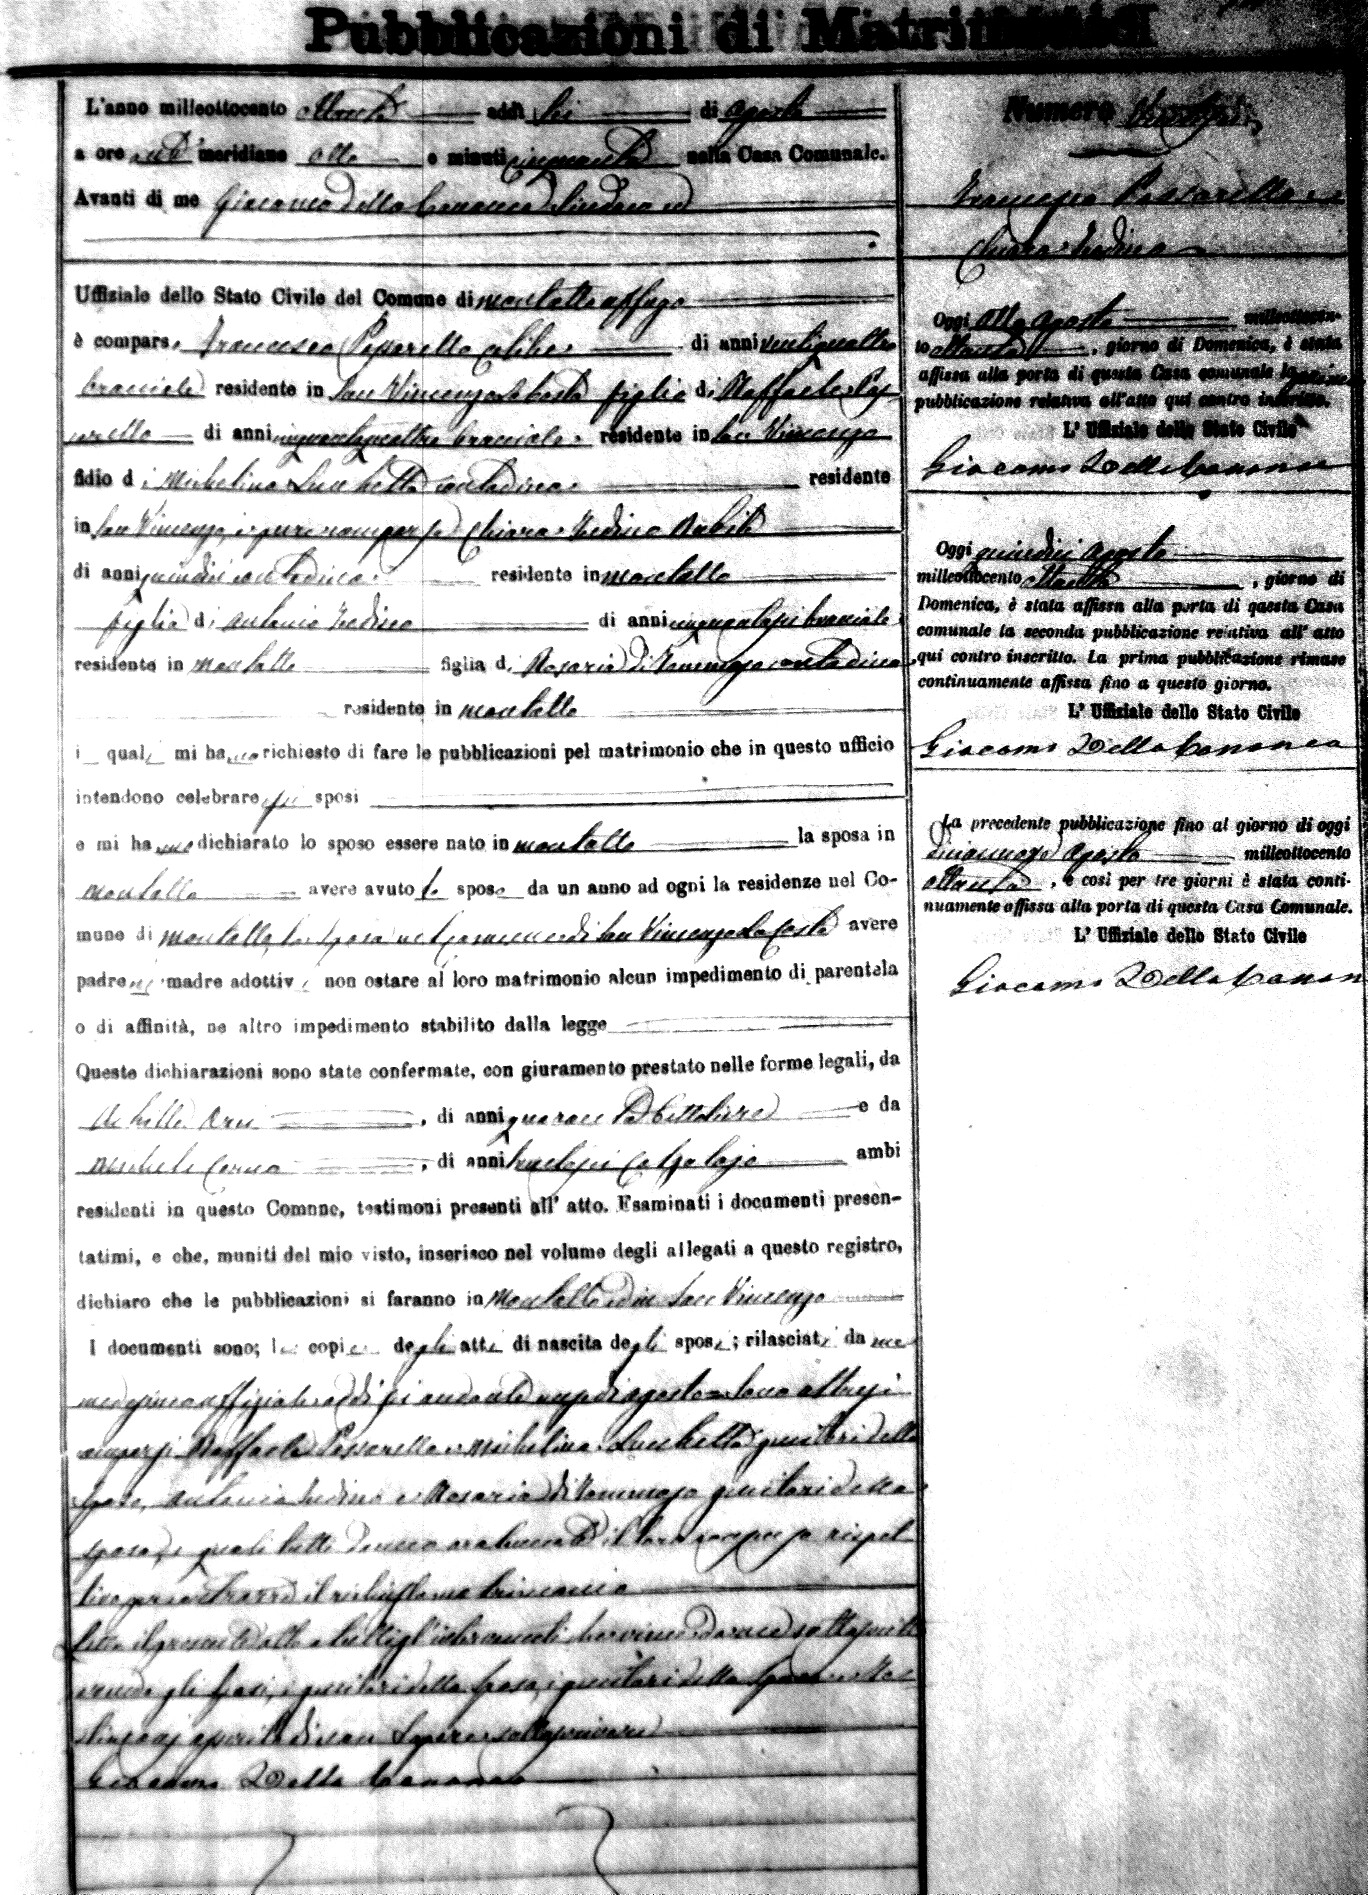 Pubblicazioni di Matrimonio
L'anno milleottocento ottanta addì sei di Agosto
a ore anti meridiane otto e minuti cinquanta nella Casa Comunale.
Avanti di me Giacomo Della Cananea Sindaco ed
Uffiziale dello Stato Civile del Comune di Montalto Uffugo
è compars Francesco Passarello celibe di anni ventiquattro
bracciale residente in San Vincenzo la Costa figlio di Raffaele Pas
sarello di anni cinquantaquattro bracciale residente in San Vincenzo
e di Michelina Lucchetta contadina residente
in San Vincenzo, e pure comparsa Chiara Tredino Nubile
di anni quindici contadina residente in Montalto
figlia di Antonio Tredino di anni cinquantasei bracciale
residente in Montalto figlia di Rosaria Di Tommaso contadina
residente in Montalto
i quali mi hanno richiesto di fare le pubblicazioni pel matrimonio che in questo ufficio
intendono celebrare sposi
e mi hanno dichiarato lo sposo essere nato in Montalto la sposa in
Montalto avere avuto la sposa da un anno ad ogni la residenze nel Co-
mune di Montalto, lo sposo nel comune di San Vincenzo la Costa avere
padre ne madre adottivi non ostare al loro matrimonio alcun impedimento di parentela
o di affinità, ne altro impedimento stabilito dalla legge
Queste dichiarazioni sono state confermate, con giuramento prestato nelle forme legali, da
Achille , di anni quaranta bettoliere e da
Michele , di anni trentasei Calzolajo ambi
residenti in questo Comune, testimoni presenti all' atto. Esaminati i documenti presen-
tatimi, e che, muniti del mio visto, inserisco nel volume degli allegati a questo registro,
dichiaro che le pubblicazioni si faranno in Montalto ed in San Vincenzo
I documenti sono; le copie degli atti di nascita degli sposi; rilasciati da me
medesimo uffiziale addi sei andante mese di agosto. Sono altresì
comparsi Raffaele Passarello e Michelina Lucchetta genitori dello
sposo, Antonio Tredino e Rosaria Di Tommaso genitori della
sposa, i quali tutti danno il loro consenso rispet
tivo per contrarre il richiesto matrimonio
Letto il presente atto a tutti gl'intervenuti
gli sposi, i genitori dello sposo, i genitori della sposa
di non sapere sottoscrivere
Giacomo Della Cananea
Numero
Francesco Passarello e
Chiara Tredino
Oggi otto Agosto milleottocen-
to ottanta , giorno di Domenica, è stata
affissa alla porta di questa Casa comunale la prima
pubblicazione relativa all'atto qui contro inscritto.
L' Uffiziale dello Stato Civile
Giacomo Della Cananea
Oggi quindici Agosto
milleottocento ottanta , giorno di
Domenica, è stata affissa alla porta di questa Casa
comunale la seconda pubblicazione relativa all' atto
qui contro inscritto. La prima pubblicazione rimase
continuamente affissa fino a questo giorno.
L' Uffiziale dello Stato Civile
Giacomo Della Cananea
La precedente pubblicazione fino al giorno di oggi
diciannove Agosto milleottocento
ottanta , e così per tre giorni è stata conti-
nuamente affissa alla porta di questa Casa Comunale.
L' Uffiziale dello Stato Civile
Giacomo Della Canan